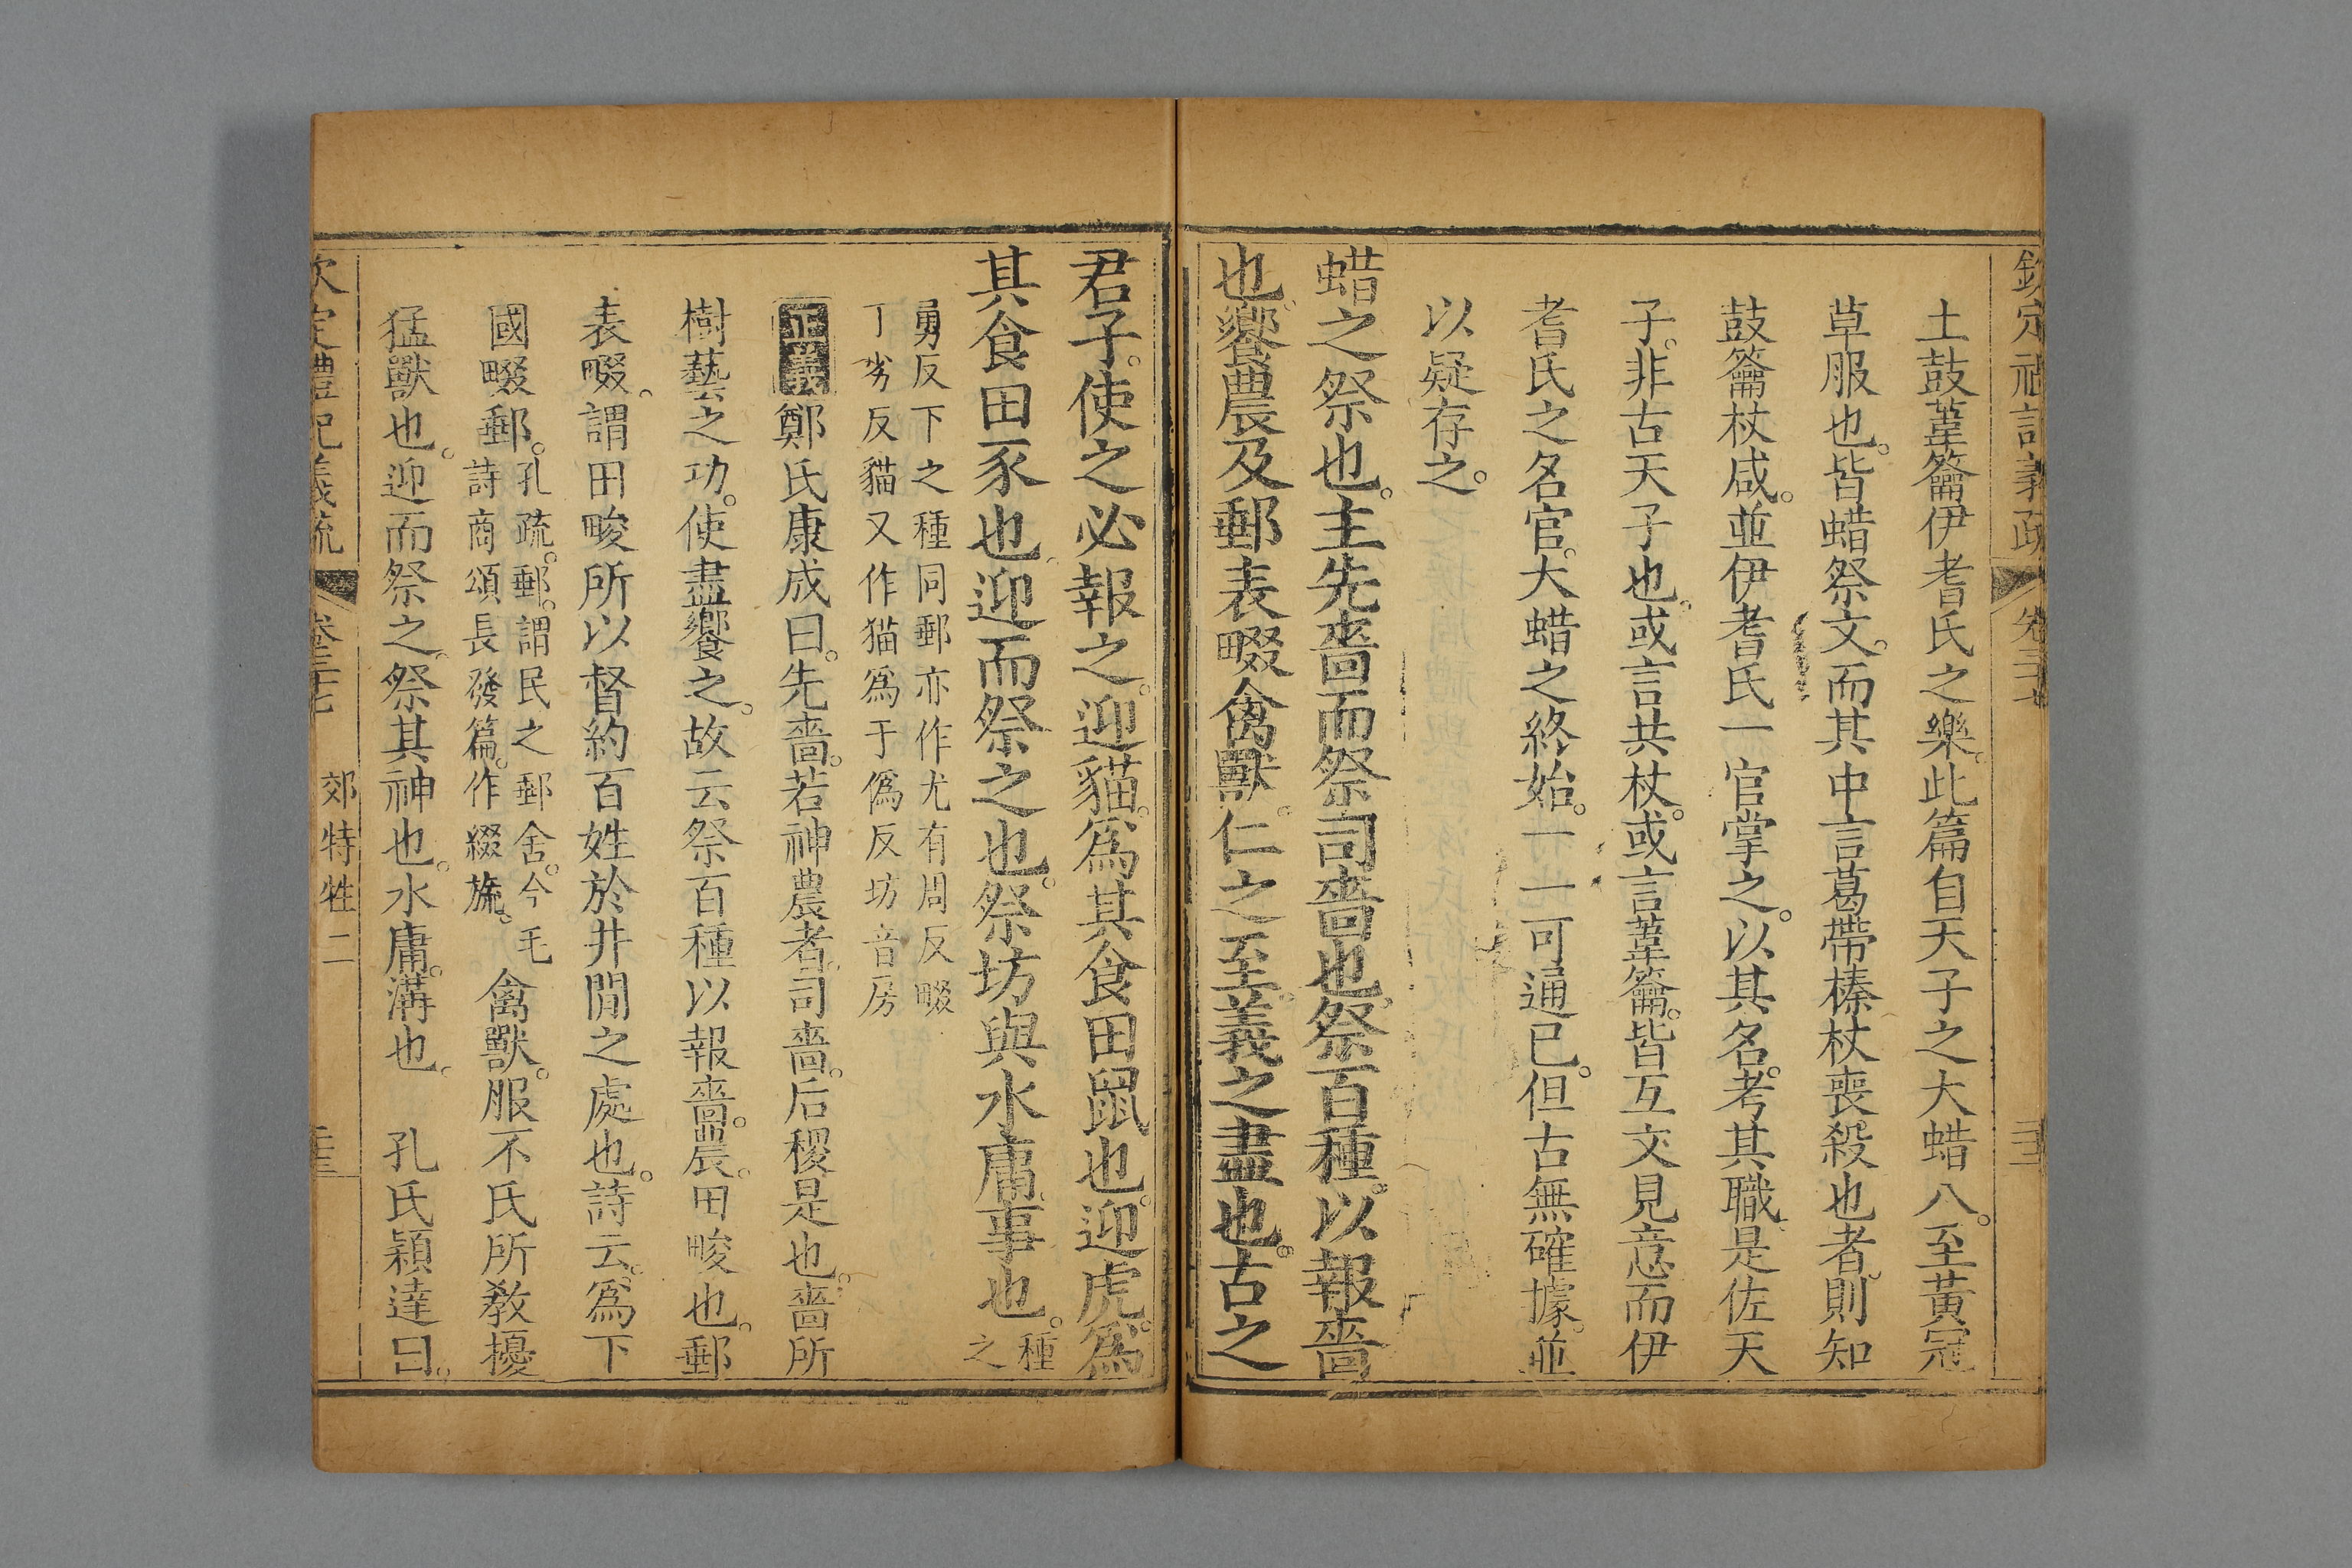 土鼓葦籥伊耆氏之樂。此篇自天子之大蜡八。至黃冠
草服也。皆蜡祭文。而其中言葛帶榛杖喪殺也者。則知
鼓籥杖咸。並伊耆氏一官掌之。以其名。考其職。是佐天
子。非古天子也。或言共杖。或言葦籥。皆互文見意。而伊
耆氏之名官。大蜡之終始。一一可通已。但古無確據。並
以疑存之。
蜡之祭也。主先嗇而祭司嗇也。祭百種。以報嗇
也。饗農及郵表畷禽獸。仁之至。義之盡也。古之
君子。使之必報之。迎貓。爲其食田鼠也。迎虎。爲
其食田豕也。迎而祭之也。祭坊與水庸事也。種之
勇反下之種同郵亦作尤有周反畷
丁劣反貓又作猫爲于僞反坊音房
正義鄭氏康成曰。先嗇。若神農者。司嗇。后稷是也。嗇所
樹藝之功。使盡饗之。故云祭百種以報嗇。農。田畯也。郵
表畷。謂田畯所以督約百姓於井閒之處也。詩云。爲下
國畷郵。孔疏。郵。謂民之郵舍。今毛
詩商頌長發篇。作綴旒。
禽獸。服不氏所教擾
猛獸也。迎而祭之。祭其神也。水庸。溝也。 孔氏穎達曰。
郊特牲二